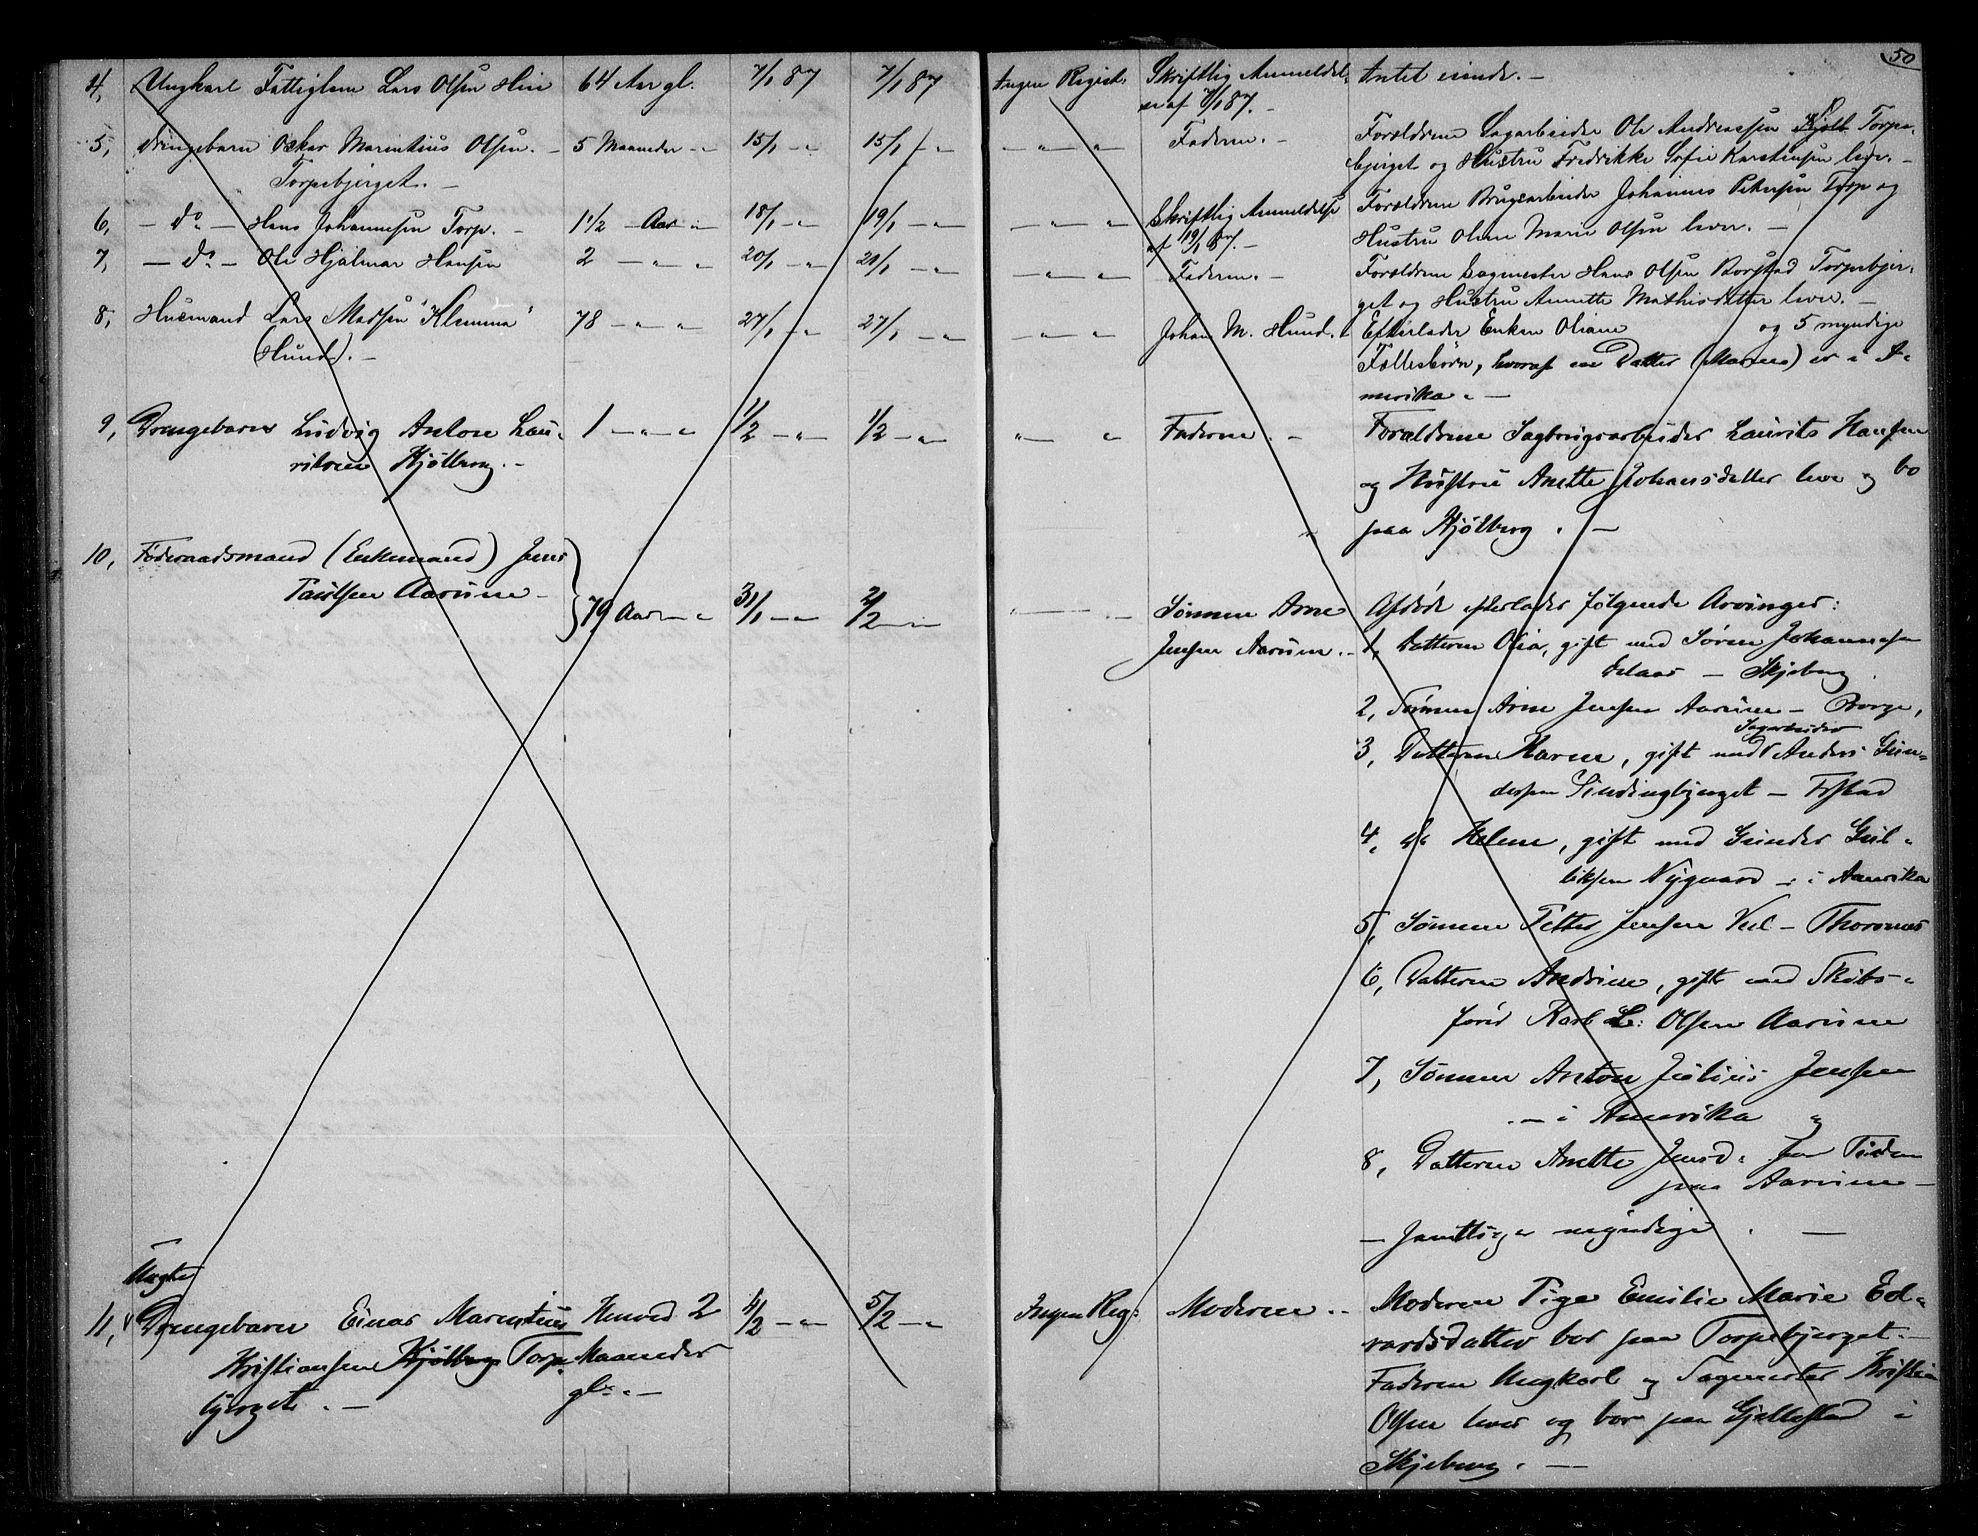 50
4, Ungkarl Fattiglem Lars Olsen Hie 64 Aar gl. 7/1 87 7/1 87 Ingen Regist. Skriftlig Anmeldel- Intet eiende. –
se af 7/1 87. –
5, Drengebarn Oskar Marentius Olsen. – 5 Maaneder „ 15/1 – „ 15/1 – „ – „ – „ Faderen. – Forældrene Sagarbeider Ole Andreassen Kjølb Torpe-
Torpebjerget. – bjerget og Hustru Fredrikke Sofie Karstensen lever. –
6, – do – Hans Johannesen Torp. – 1 1/2 – Aar „ 18/1 – „ 19/1 – „ – „ – „ Skriftlig Anmeldelse Forældrene Brugsarbeider Johannes Petersen Torp og
af 19/1 87. – Hustru Oline Marie Olsen lever. –
7, – do – Ole Hjalmar Hansen 2 – „ – „ 20/1 – „ 21/1 – „ – „ – „ Faderen. – Forældrene Sagmester Hans Olsen Borstad Torpebjer-
get og Hustru Annette Mathisdatter lever. –
8, Husmand Lars Madsen "Klemma" 78 – „ – „ 27/1 – „ 27/1 – „ – „ – „ Johan M. Hund. Efterlader Enken Oliane og 5 myndige
(Hund). – Fællesbørn, hvoraf en Datter (Maren) er i A-
merika. –
9, Drengebarn Ludvig Anton Lau- 1 – „ – „ 1/2 – „ 1/2 – „ „ – „ Faderen. – Forældrene Sagbrugsarbeider Laurits Hansen
ritsen Kjølberg. – og Hustru Anette Johansdatter leve og bo
paa Kjølberg. –
10, Føderaadsmand (Enkemand) Jens
Paulsen Aarum – 79 Aar – „ 31/1 – „ 2/2 – „ „ – „ Sønnen Arne Afdøde efterlader følgende Arvinger:
Jensen Aarum. – 1, Datteren Olia, gift med Søren Johannesen
– Skjeberg.
2, Sønnen Arne Jensen Aarum – Borge,
Sagarbeider
3, Datteren Karen, gift med Anders Gun-
dersen – Ifstad
4, do Helene, gift med Gunder Gul-
liksen Nygaard – i Amerika
5, Sønnen Petter Jensen – Thorsnæs
6, Datteren Andrine, gift med Skibs-
fører Karl L: Olsen Aarum
7, Sønnen Anton Julius Jensen
– i Amerika „
8, Datteren Anette Jensd. for Tiden
paa Aarum –
– samtlige myndige. –
Uægte
11, Drengebarn Einar Marentius Henved 2 4/2 – „ 5/2 – „ Ingen Reg: Moderen. – Moderen Pige Emilie Marie Ed-
Kristiansen Kjølberg Torpe- Maaneder vardsdatter bor paa Torpebjerget. –
bjerget. – gl. – Faderen Ungkarl og Sagmester Kristian
Olsen lever og bor paa Gjellestad i
Skjeberg. –